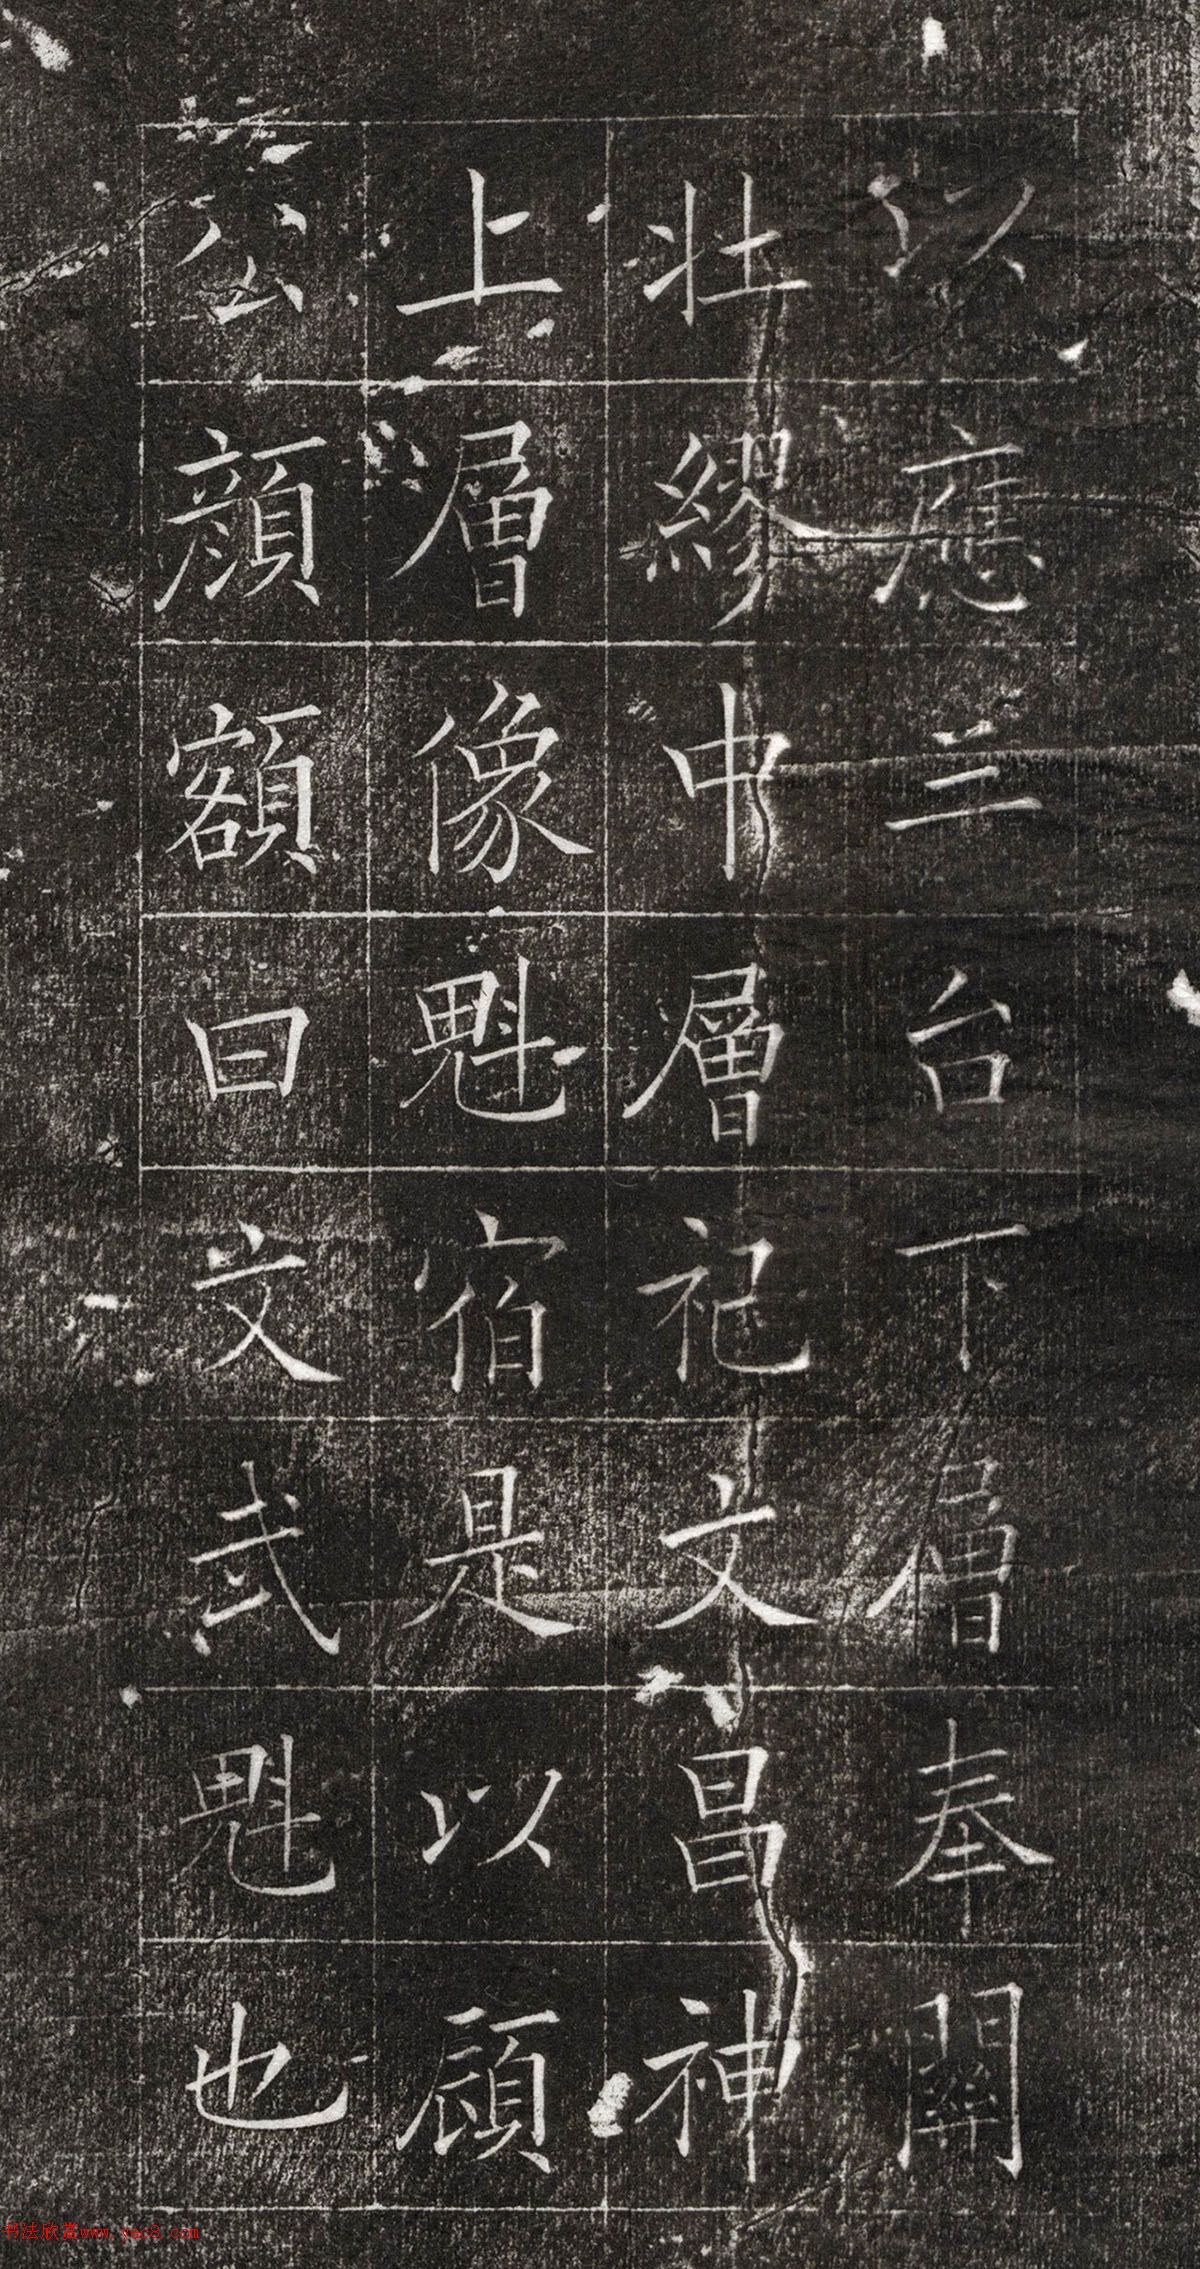 以應三台下層奉關
壯繆中層祀文昌神
上層像魁宿是以顧
公顏額曰文武魁也
书法欣赏www.yac8.com